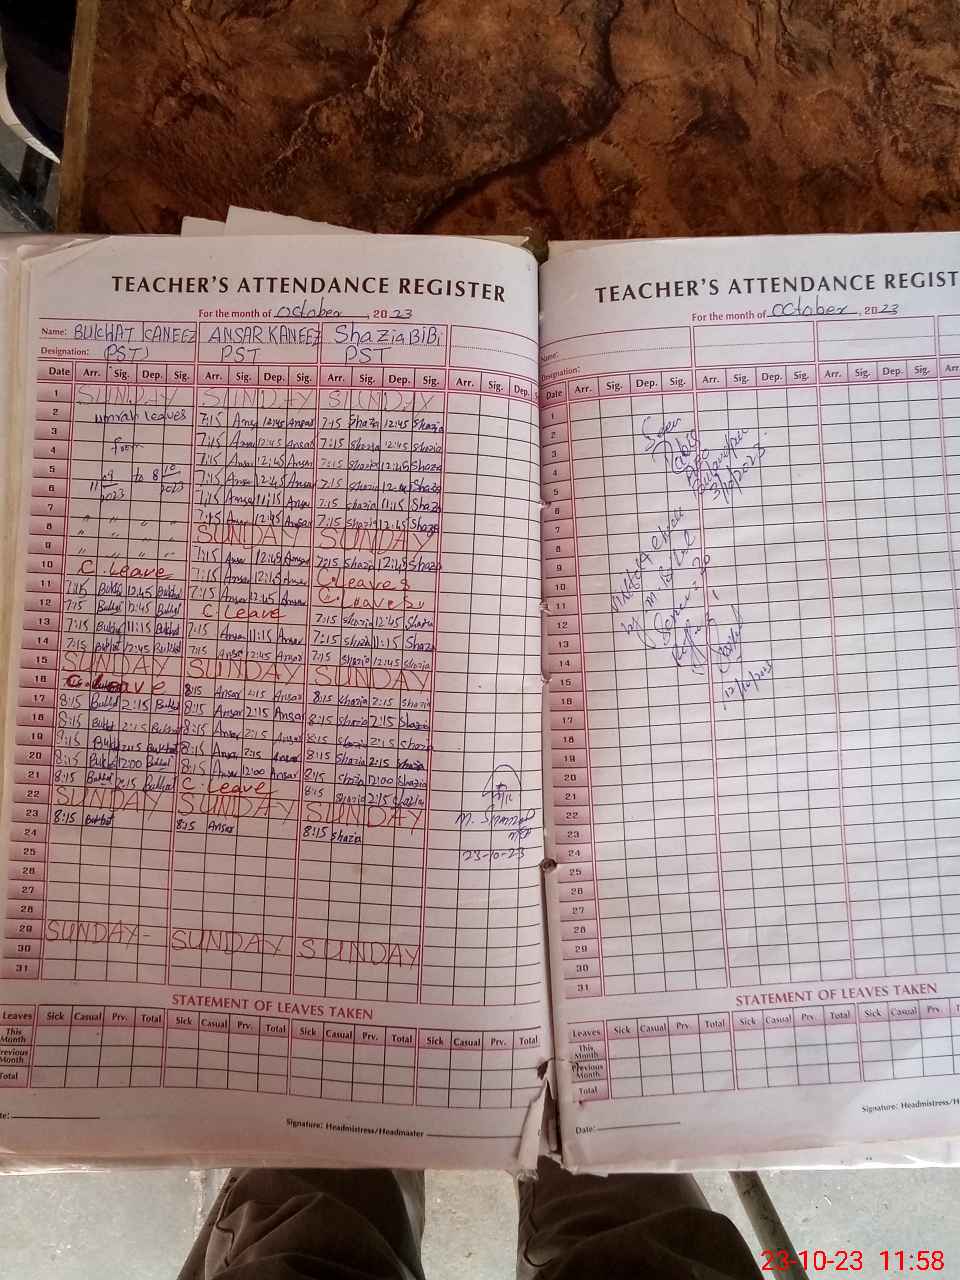 TEACHER'S ATTENDANCE REGISTER
For the month of October, 2023
Name: BULCHAT KANEEZ ANSAR KANEEZ Shazia BiBi
Designation: (PST) PST PST
Date Arr. Sig. Dep. Sig. Arr. Sig. Dep. Sig. Arr. Sig. Dep. Sig. Arr. Sig. Dep.
1 SUNDAY SUNDAY SUNDAY
2 umrah leaves 7:15 Ansar 12:45 Ansar 7:15 Shazia 12:45 Shazia
3 7:45 Ansar 12:45 Ansar 7:15 Shazia 12:45 Shazia
4 from 7:15 Ansar 12:45 Ansar 7:15 Shazia 12:45 Shazia
5 to 8 7:15 Ansar 12:45 Ansar 7:15 Shazia Shazia
6 2023 2023 7:15 Ansar 11:15 Ansar 7:15 Shazia 11:15 Shazia
7 " " " " 7:45 Ansar 12:45 Ansar 7:15 Shazia 12:45 Shazia
8 " " " " SUNDAY SUNDAY
9 " " " " 7:15 Ansar 12:45 Ansar 7:15 Shazia 12:45 Shazia
10 C. Leave 7:15 Ansar 12:45 Ansar C. Leave
11 7:15 Bukhat 12:45 Bukhat 7:15 Ansar 12:45 Ansar C. Leave
12 7:15 Bukhat 12:45 Bukhat C. Leave 7:15 Shazia 12:45 Shazia
13 7:15 Bukhat 11:15 Bukhat 7:15 Ansar 11:15 Ansar 7:15 Shazia 11:15 Shazia
14 7:15 Bukhat 12:45 Bukhat 7:15 Ansar 12:45 Ansar 7:15 Shazia 12:45 Shazia
15 SUNDAY SUNDAY SUNDAY
16 C. Leave 8:15 Ansar 2:15 Ansar 8:15 Shazia 2:15 Shazia
17 8:15 Bukhat 2:15 Bukhat 8:15 Ansar 2:15 Ansar 8:15 Shazia 2:15 Shazia
18 8:15 Bukhat 2:15 Bukhat 8:15 Ansar 2:15 Ansar 8:15 Shazia 2:15 Shazia
19 8:15 Bukhat 2:15 Bukhat 8:15 Ansar 2:15 Ansar 8:15 Shazia 2:15 Shazia
20 8:15 Bukhat 12:00 Bukhat 8:15 Ansar 12:00 Ansar 8:15 Shazia 12:00 Shazia
21 8:15 Bukhat 2:15 Bukhat C. Leave 8:15 Shazia 2:15 Shazia
22 SUNDAY SUNDAY SUNDAY
23 8:15 Bukhat 8:15 Ansar 8:15 Shazia M.
24
23-10-23
25
26
27
28
29 SUNDAY- SUNDAY SUNDAY
30
31
STATEMENT OF LEAVES TAKEN
Leaves Sick Casual Prv. Total Sick Casual Prv. Total Sick Casual Prv. Total Sick Casual Prv. Total
This Month
Previous Month
Total
Signature: Headmistress/Headmaster
TEACHER'S ATTENDANCE REGIST
For the month of October, 2023
Name:
Designation:
Date Arr. Sig. Dep. Sig. Arr. Sig. Dep. Sig. Arr. Sig. Dep. Sig. Arr.
1
2
3
4
5
6
7
8
9
10
11
12
13
14
15
16
17
18
19
20
21
22
23
24
25
26
27
28
29
30
31
Seen
3/10/2023
by M.
12/10/2023
STATEMENT OF LEAVES TAKEN
Leaves Sick Casual Prv. Total Sick Casual Prv. Total Sick Casual
This Month
Previous Month
Total
Signature: Headmistress/H
Date:
23-10-23 11:58